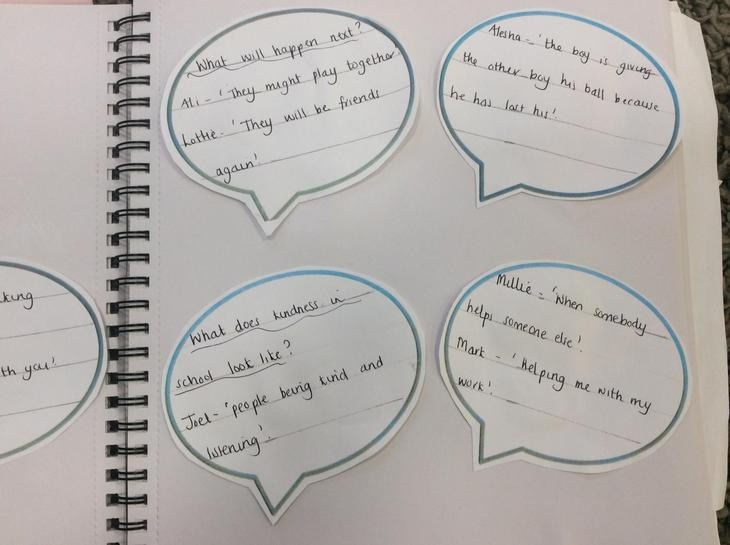 What will happen next?
Ali - 'They might play together'
Lottie - 'They will be friends
again!'
Alesha - 'the boy is giving
the other boy his ball because
he has lost his!'
What does kindness in
school look like?
Joel - 'people being kind and
listening'.
Millie - 'When somebody
helps someone else'.
Mark - 'Helping me with my
work'.
king
th you!'